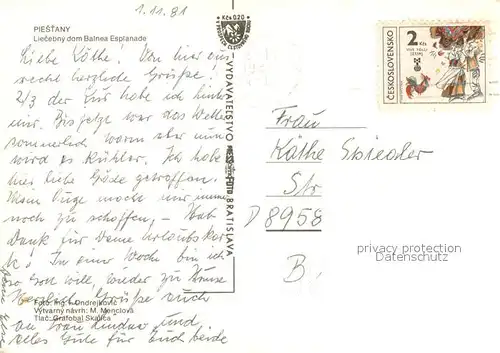 1.11.81
PIEŠŤANY
Liečebný dom Balnea Esplanade
Liebe Käthe! Von hier ein
recht herzliche Grüße!
2/3 der Kur habe ich hinter
mir. Bis jetzt war das Wetter
sommerlich warm aber nun
wird es kühler. Ich habe
hier liebe Gäste getroffen.
Mein Auge macht mir immer
noch zu schaffen, – Hab
Dank für Deine Urlaubskar
te! In einer Woche bin ich
so Gott will, wieder zu Hause
Herzlich Grüße auch
an Frau und
alles Gute für Euch beide
Foto: Ing. I. Ondrejkovič
Výtvarný návrh: M. Menclová
Tlač: Grafobal Skalica
Kčs 0,20
VYDAVATEĽSTVO
BRATISLAVA
ČESKOSLOVENSKO
2 Kčs
Frau
Käthe
Str
D 8958
B.
privacy protection
Datenschutz